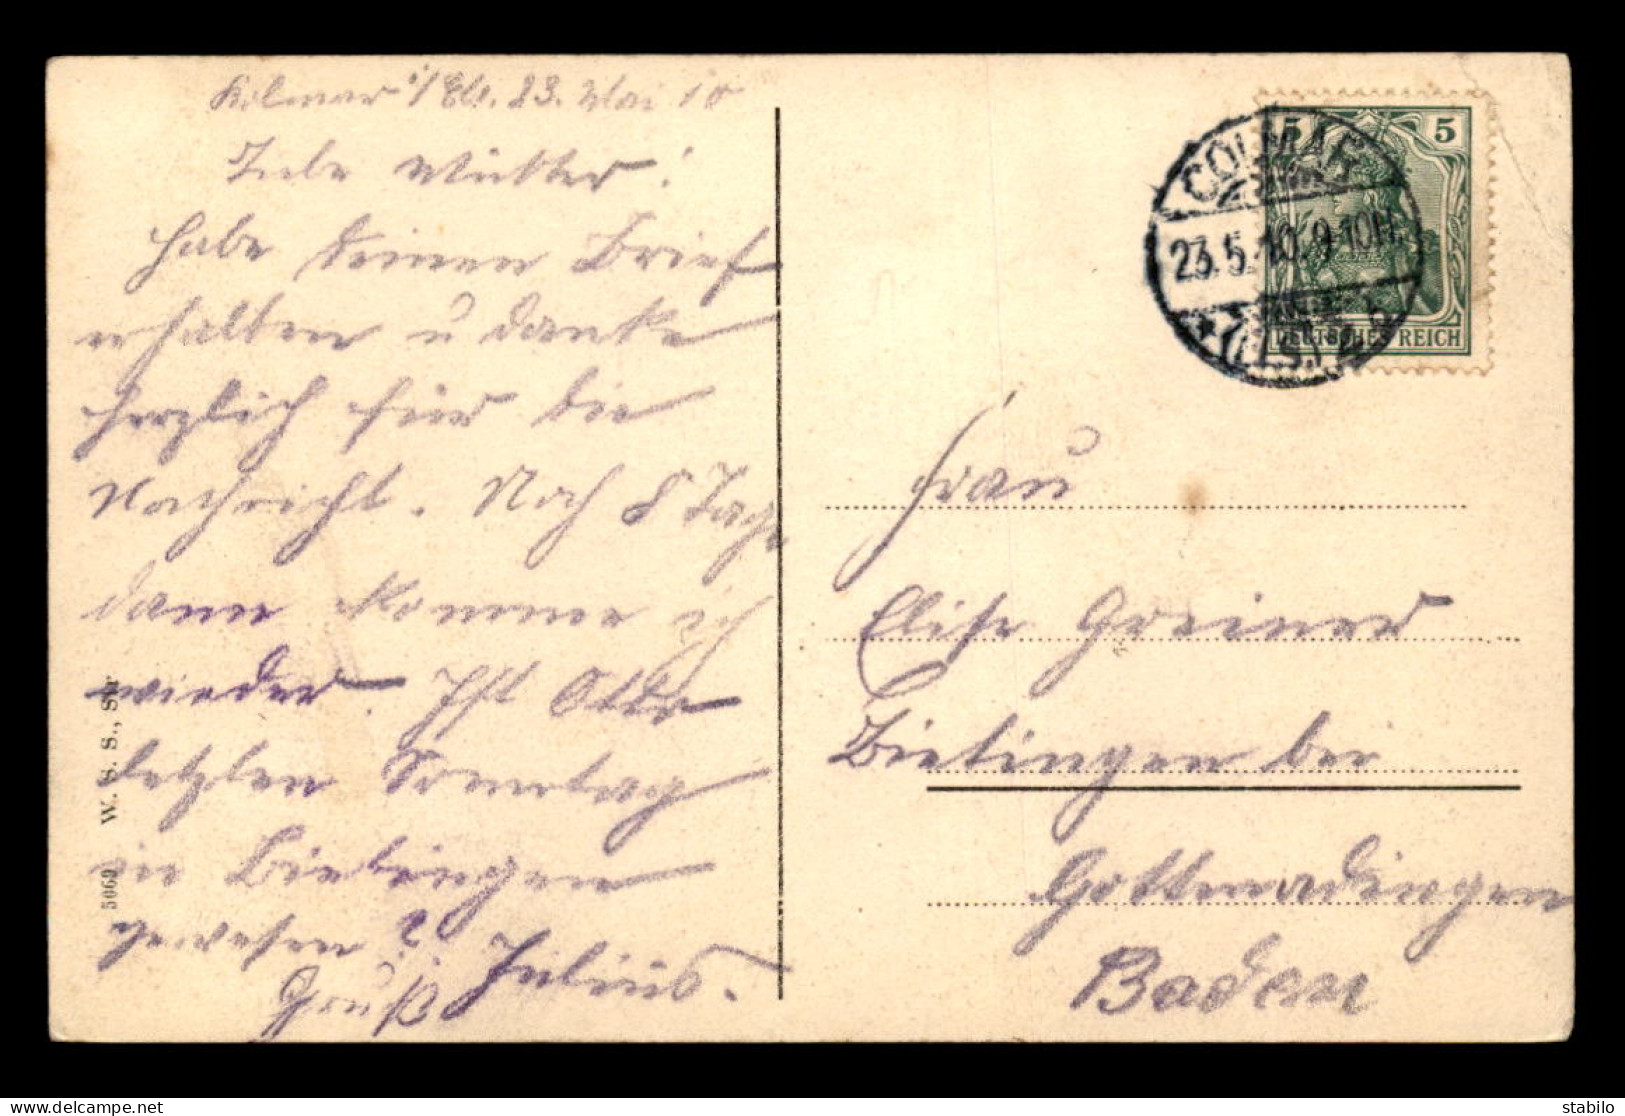 Kolmar i/Els. 23. Mai 10
Liebe Mutter!
habe deinen Brief
erhalten u danke
herzlich für die
Nachricht. Noch 8 Tage
dann komme ich
wieder. Ist Otto
letzten Sonntag
in Bietingen
gewesen?
Gruß Julius.
5069 W. S. S., Str
COLMAR
23.5.10. 9-10N.
* (ELS.)
5 5
DEUTSCHES REICH
Frau
Elise Greiner
Bietingen bei
Gottmadingen
Baden
delcampe.net
stabilo